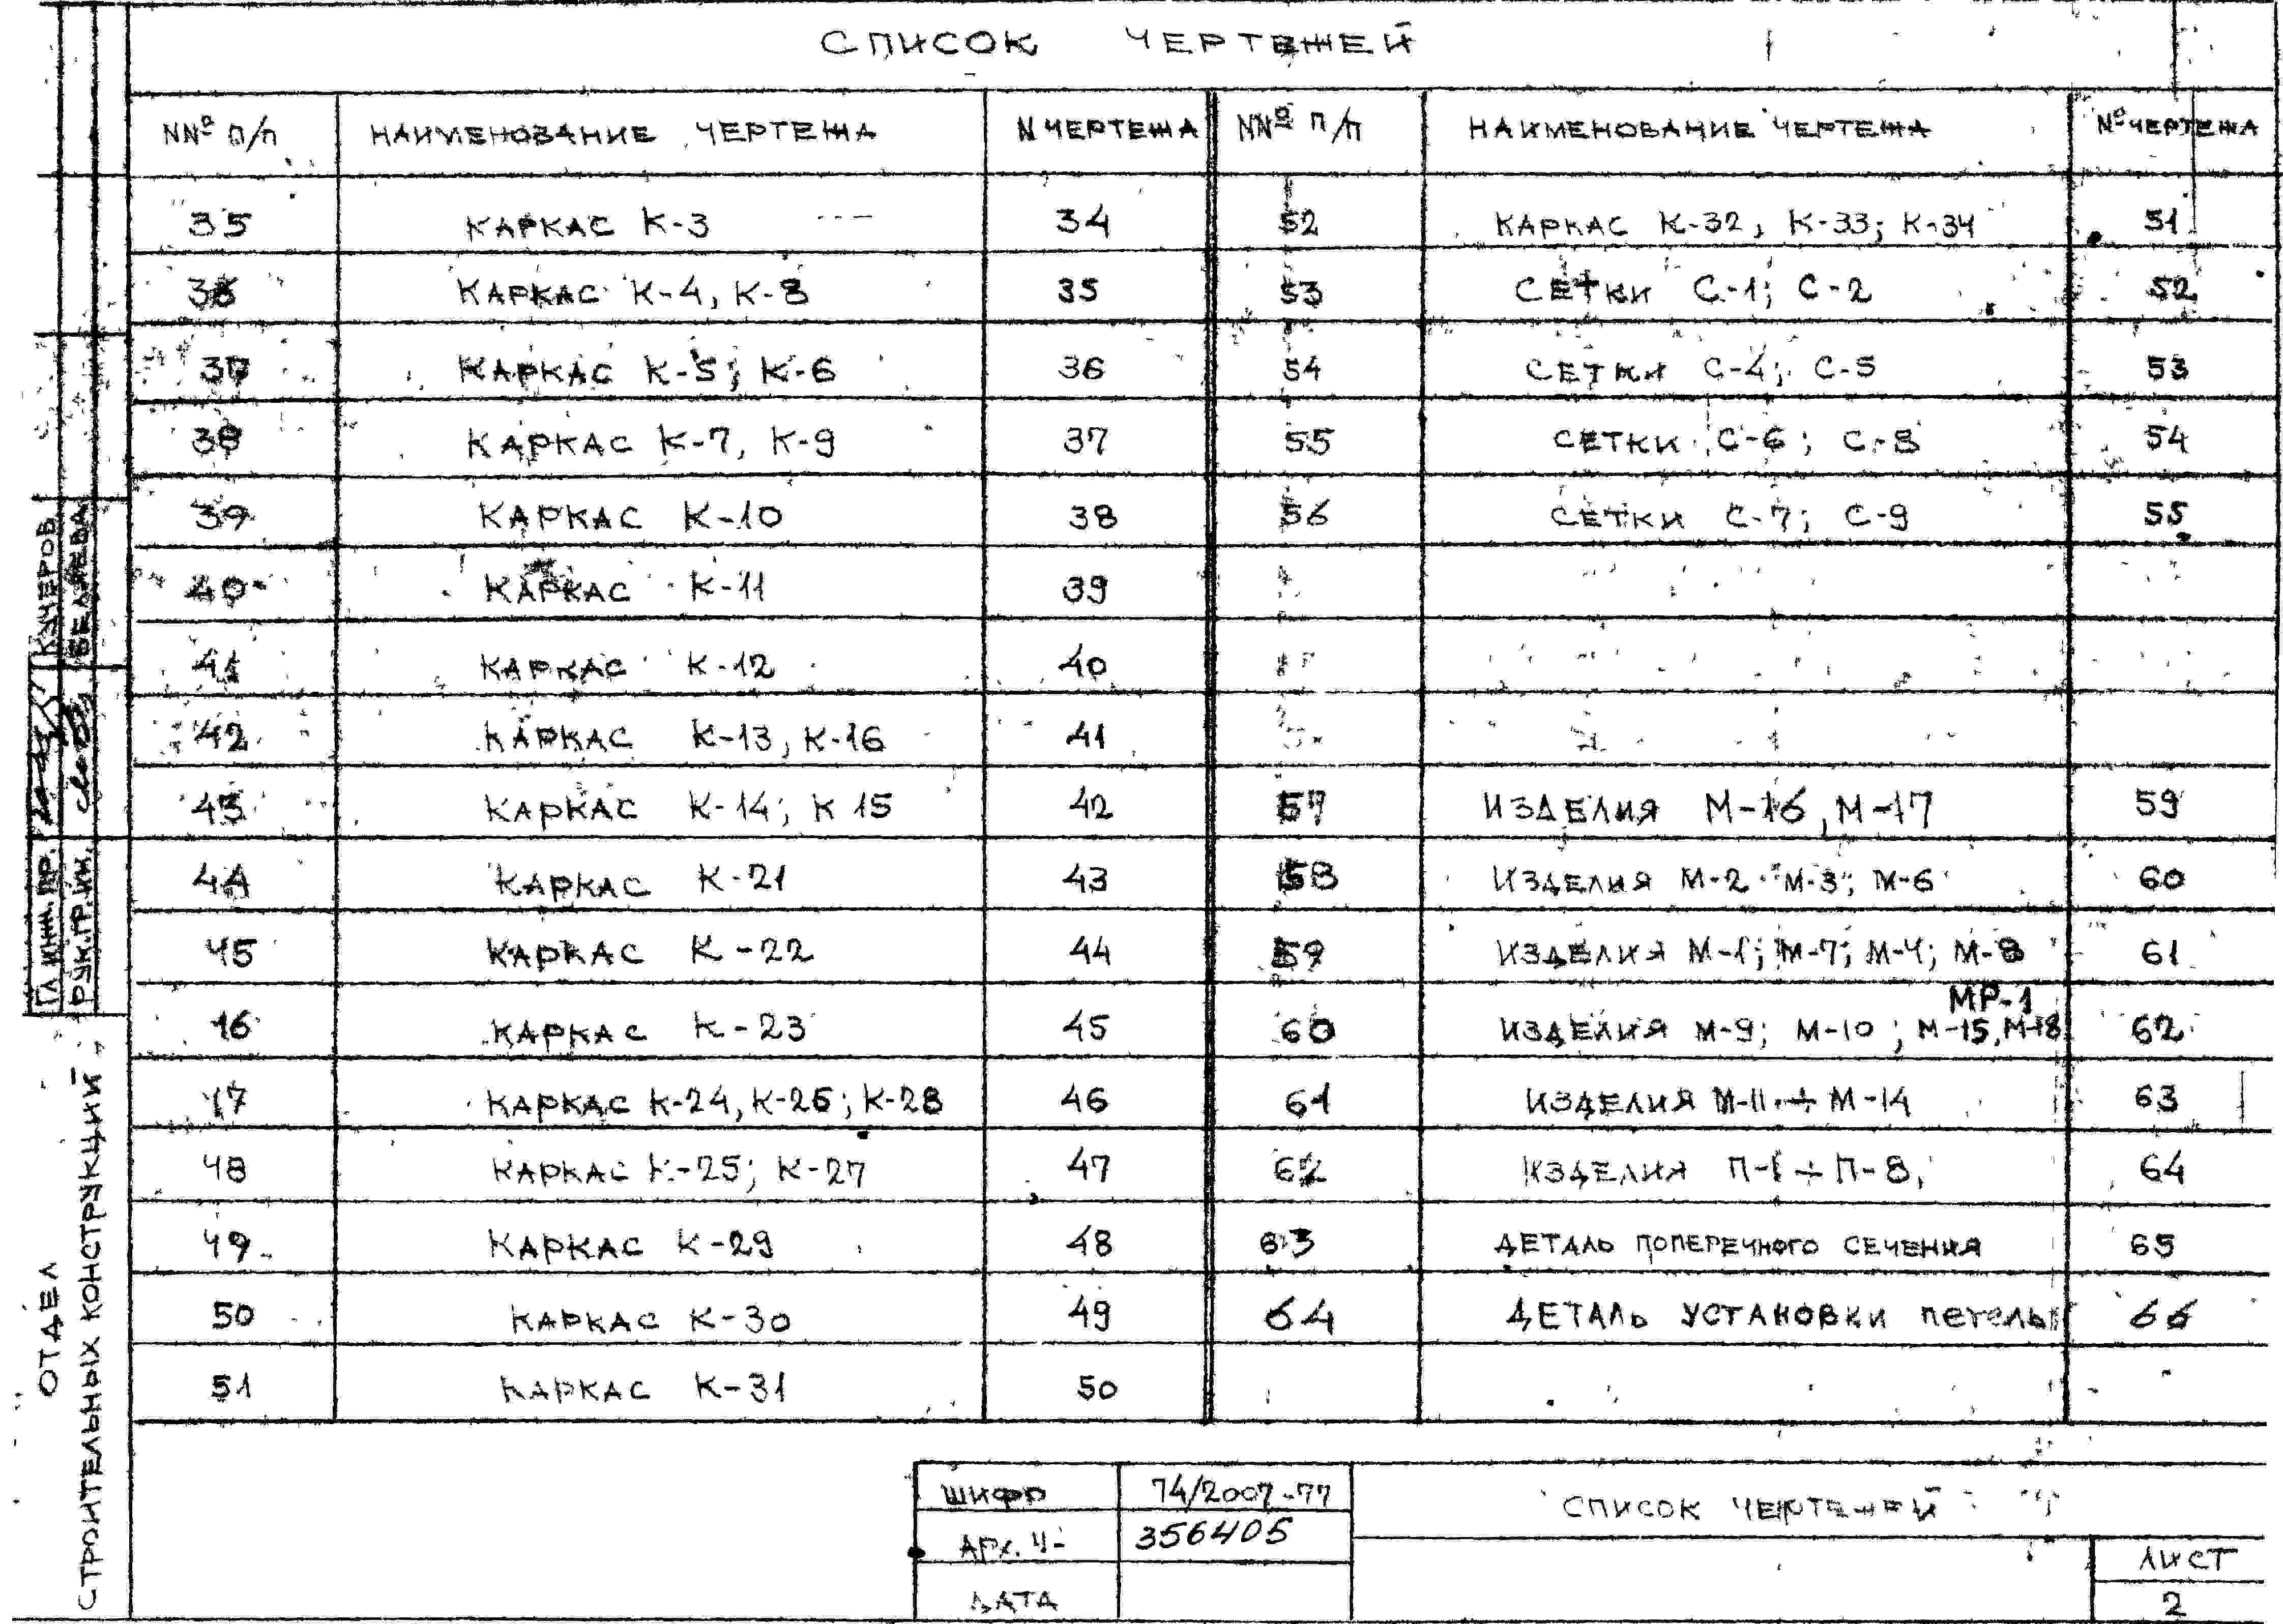 СПИСОК ЧЕРТЕЖЕЙ
NNº П/П НАИМЕНОВАНИЕ ЧЕРТЕЖА N ЧЕРТЕЖА NNº П/П НАИМЕНОВАНИЕ ЧЕРТЕЖА Nº ЧЕРТЕЖА
35 КАРКАС К-3 34 52 КАРКАС К-32, К-33; К-34 51
36 КАРКАС К-4, К-8 35 53 СЕТКИ С-1; С-2 52
37 КАРКАС К-5; К-6 36 54 СЕТКИ С-4; С-5 53
38 КАРКАС К-7, К-9 37 55 СЕТКИ С-6; С-8 54
39 КАРКАС К-10 38 56 СЕТКИ С-7; С-9 55
40 КАРКАС К-11 39
41 КАРКАС К-12 40
42 КАРКАС К-13, К-16 41
43 КАРКАС К-14; К 15 42 57 ИЗДЕЛИЯ М-16, М-17 59
44 КАРКАС К-21 43 58 ИЗДЕЛИЯ М-2 М-3; М-6 60
45 КАРКАС К-22 44 59 ИЗДЕЛИЯ М-1; М-7; М-4; М-8 61
МР-1
46 КАРКАС К-23 45 60 ИЗДЕЛИЯ М-9; М-10; М-15, М-18 62
47 КАРКАС К-24, К-26; К-28 46 61 ИЗДЕЛИЯ М-11 ÷ М-14 63
48 КАРКАС К-25; К-27 47 62 ИЗДЕЛИЯ П-1 ÷ П-8, 64
49 КАРКАС К-29 48 63 ДЕТАЛЬ ПОПЕРЕЧНОГО СЕЧЕНИЯ 65
50 КАРКАС К-30 49 64 ДЕТАЛЬ УСТАНОВКИ ПЕТЕЛЬ 66
51 КАРКАС К-31 50
ШИФР 74/2007-77 СПИСОК ЧЕРТЕЖЕЙ
АРХ. Ч- 356405
ДАТА
ЛИСТ
2
ГЛ. ИНЖ. ПР. КУЧЕРОВ
РУК. ГР. ИН. БЕЛЯЕВА
ОТДЕЛ
СТРОИТЕЛЬНЫХ КОНСТРУКЦИЙ